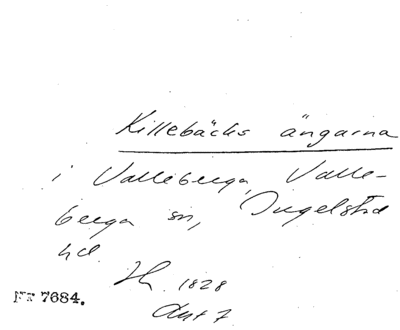 Killebäcks ängarna
i Valleberga, Valle-
berga sn, Ingelstad
hd.
1828
Akt 7
Nr 7684.